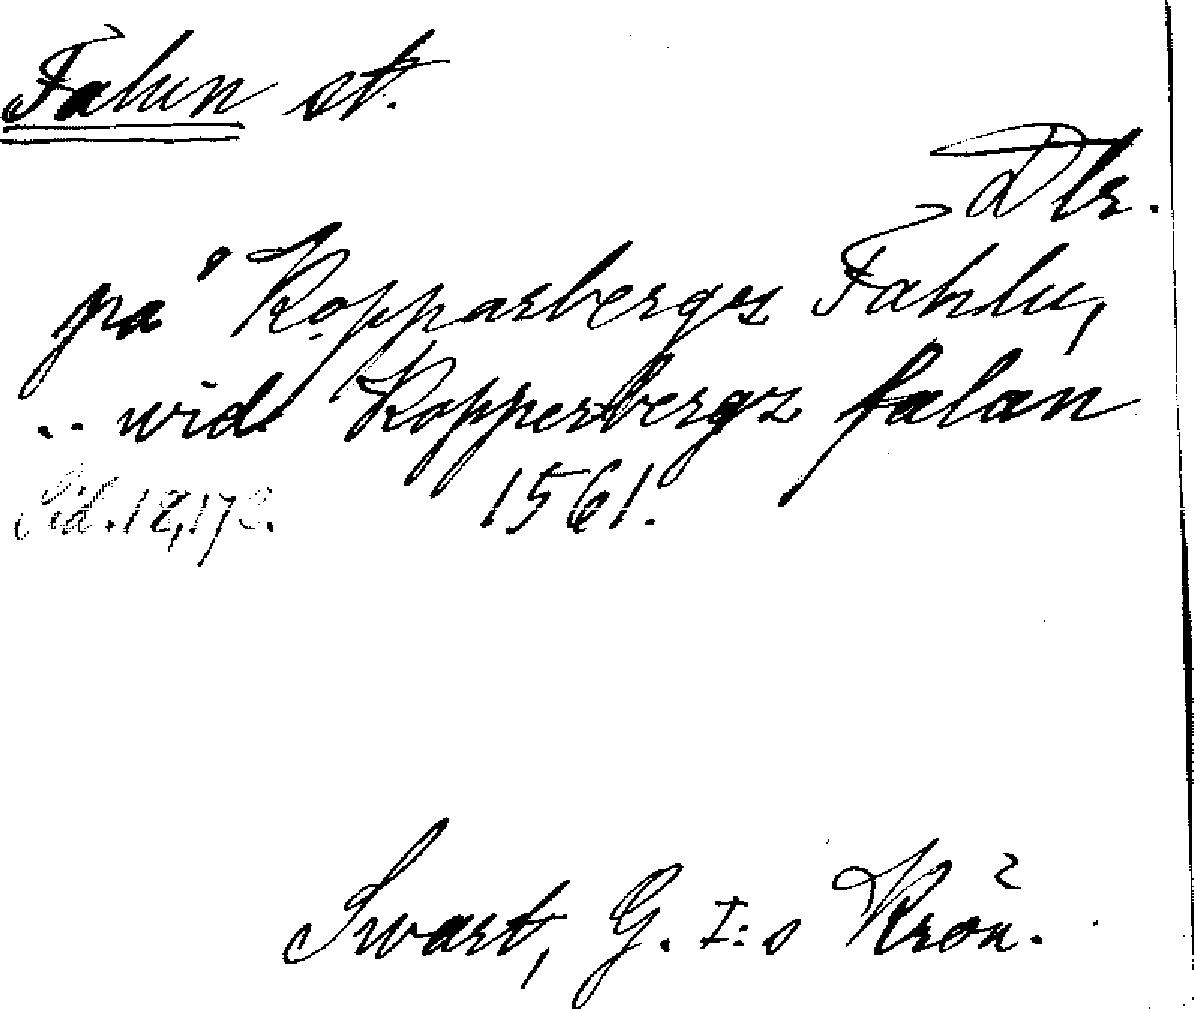 Falun st.
Dlr.
på Kopparbergz Fahlu,
.. widh Kopperbergz falan
Sid. 12, 172. 1561.
Swart, G. I:s Krön.